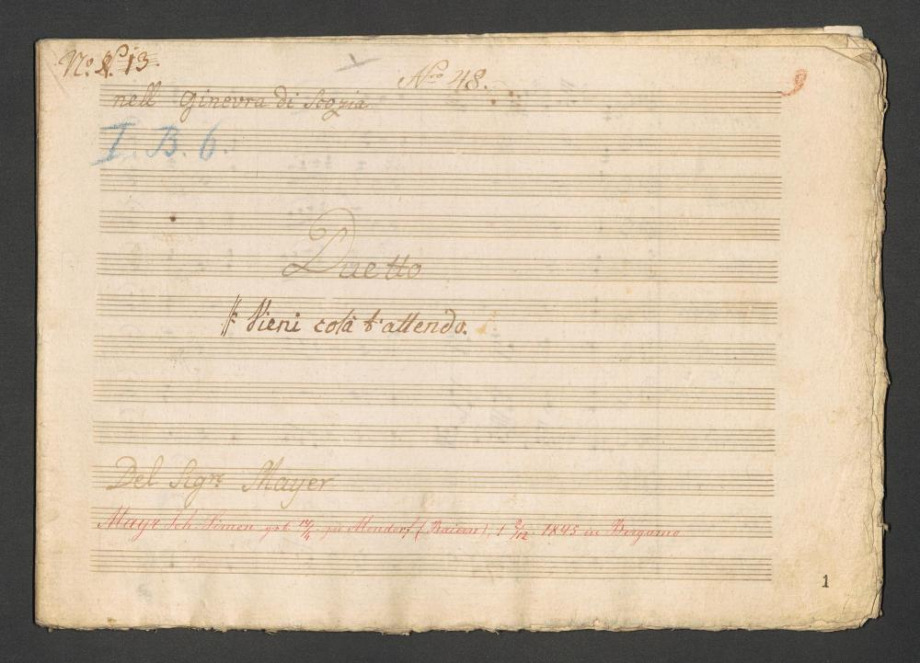 No. 8. 13.
Nro 48.
9
nell Ginevra di Scozia
I. B. 6.
Duetto
Vieni colà t'attendo.
Del Sigr Mayer
Mayr Joh. Simon geb 14/6 zu Mendorf (Baiern), † 2/12 1845 in Bergamo
1